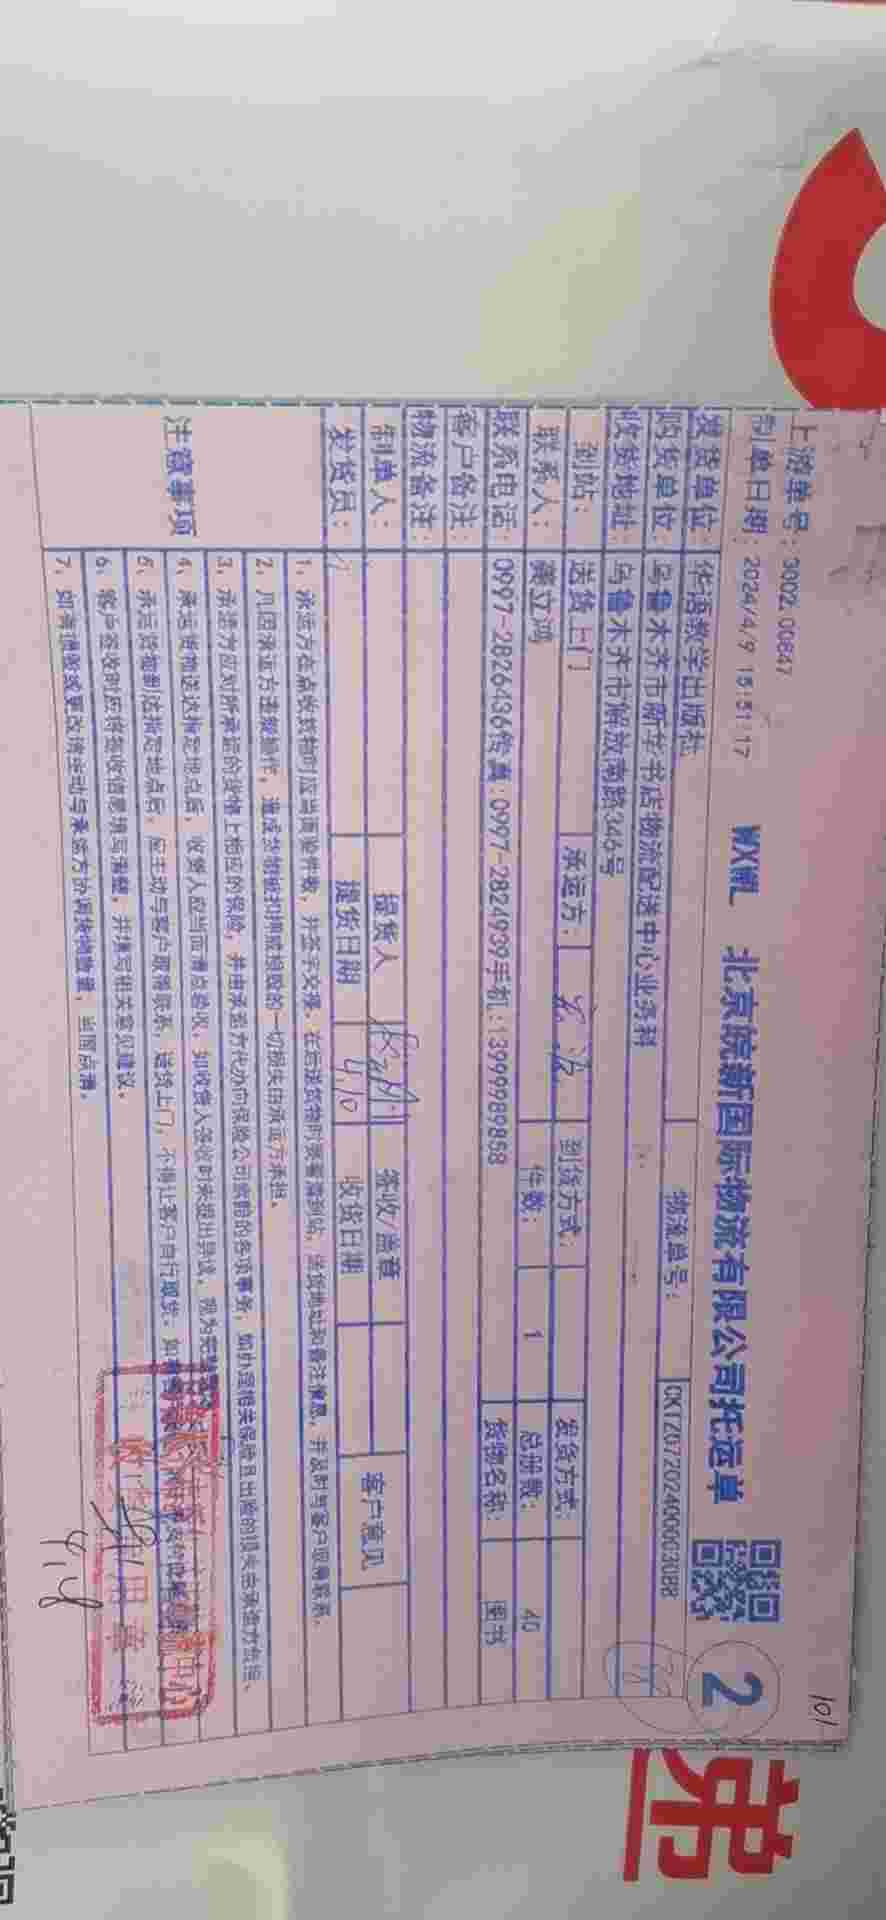 101
上游单号：9002.00847
制单日期：2024/4/9 15:51:17 WXWL 北京皖新国际物流有限公司托运单 2
发货单位：华语教学出版社 物流单号：CKTZD7202400003088
购货单位：乌鲁木齐市新华书店物流配送中心业务科
收货地址：乌鲁木齐市解放南路346号
到站：送货上门 承运方： 到货方式： 发货方式：
联系人：龚立鸿 件数：1 总册数：40
联系电话：0997-2826436传真：0997-2824939手机：13999989858 货物名称：图书
客户备注：
物流备注：
制单人： 提货人 签收/盖章 客户意见
发货员： 提货日期 4.10 收货日期
注意事项
1、承运方在点收货物时应当面验件数，并签字交接，在运送货物时要看清到站、送货地址和备注信息，并及时与客户取得联系。
2、凡因承运方违规操作，造成货物被扣押或损毁的一切损失由承运方承担。
3、承运方应对所承运的货物上相应的保险，并由承运方代办向保险公司索赔的各项事务，如办理相关保险且出险的损失由承运方负担。
4、承运货物送达指定地点后，收货人应当面清点验收，如收货人签收时未提出异议，视为完
5、承运货物到达指定地点后，应主动与客户取得联系，送货上门，不得让客户自行取货。如
6、客户签收时应将签收信息填写清楚，并填写相关意见建议。
7、如有错收或更改请主动与承运方协调货物数量，当面点清。
用章
弟